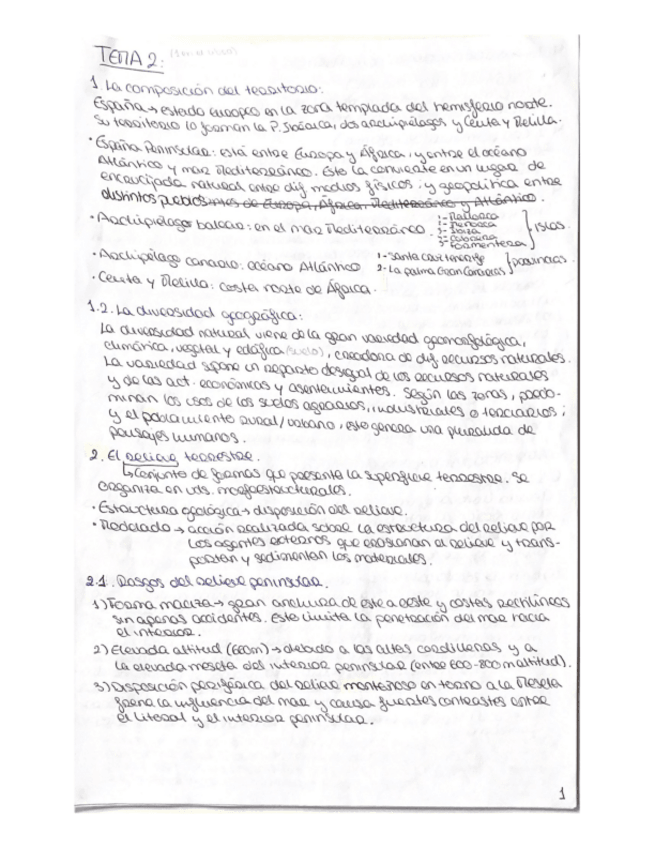 TEMA 2:
1. La composición del territorio:
España → estado europeo en la zona templada del hemisferio norte.
Su territorio lo forman la P. Ibérica, dos archipiélagos y Ceuta y Melilla.
· España Peninsular: está entre Europa y África, y entre el océano
Atlántico y mar Mediterráneo. Esto la convierte en un lugar de
encrucijada natural entre dif medios físicos. y geopolítica entre
distintos pueblos de Europa, África, Mediterráneo y Atlántico.
· Archipiélago balear: en el mar Mediterráneo.
1- Mallorca
2- Menorca
3- Ibiza
4- Cabrera
5- Formentera
Islas
· Archipiélago canario: océano Atlántico
1- Santa Cruz Tenerife
2- La palma Gran Canarias
provincias.
· Ceuta y Melilla: costa norte de África.
1.2. La diversidad geográfica:
La diversidad natural viene de la gran variedad geomorfológica,
climática, vegetal y edáfica (suelo), creadora de dif recursos naturales.
La variedad supone un reparto desigual de los recursos naturales
y de las act. económicas y asentamientos. Según las zonas, predo-
minan los usos de los suelos agrarios, industriales o terciarios;
y el poblamiento rural/urbano, esto genera una pluralida de
paisajes humanos.
2. El relieve terrestre.
↳ Conjunto de formas que presenta la superficie terrestre. Se
organiza en uds. morfoestructurales.
· Estructura geológica → disposición del relieve.
· Modelado → acción realizada sobre la estructura del relieve por
los agentes externos que erosionan al relieve y trans-
portan y sedimentan los materiales.
2.1. Rasgos del relieve peninsular.
1) Forma maciza → gran anchura de este a oeste y costas rectilíneas
sin apenas accidentes. Esto limita la penetración del mar hacia
el interior.
2) Elevada altitud (660m) → debido a las altas cordilleras y a
la elevada meseta del interior peninsular (entre 600-800 m altitud).
3) Disposición periférica del relieve montañoso en torno a la Meseta
frena la influencia del mar y causa fuertes contrastes entre
el litoral y el interior peninsular.
1